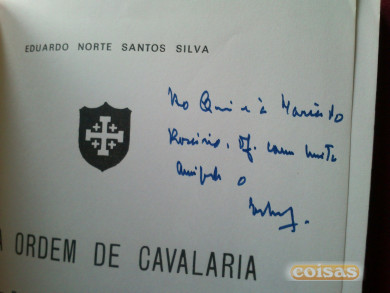 EDUARDO NORTE SANTOS SILVA
Ao e à Maria do
Rosário, com muita
o
A ORDEM DE CAVALARIA
coisas